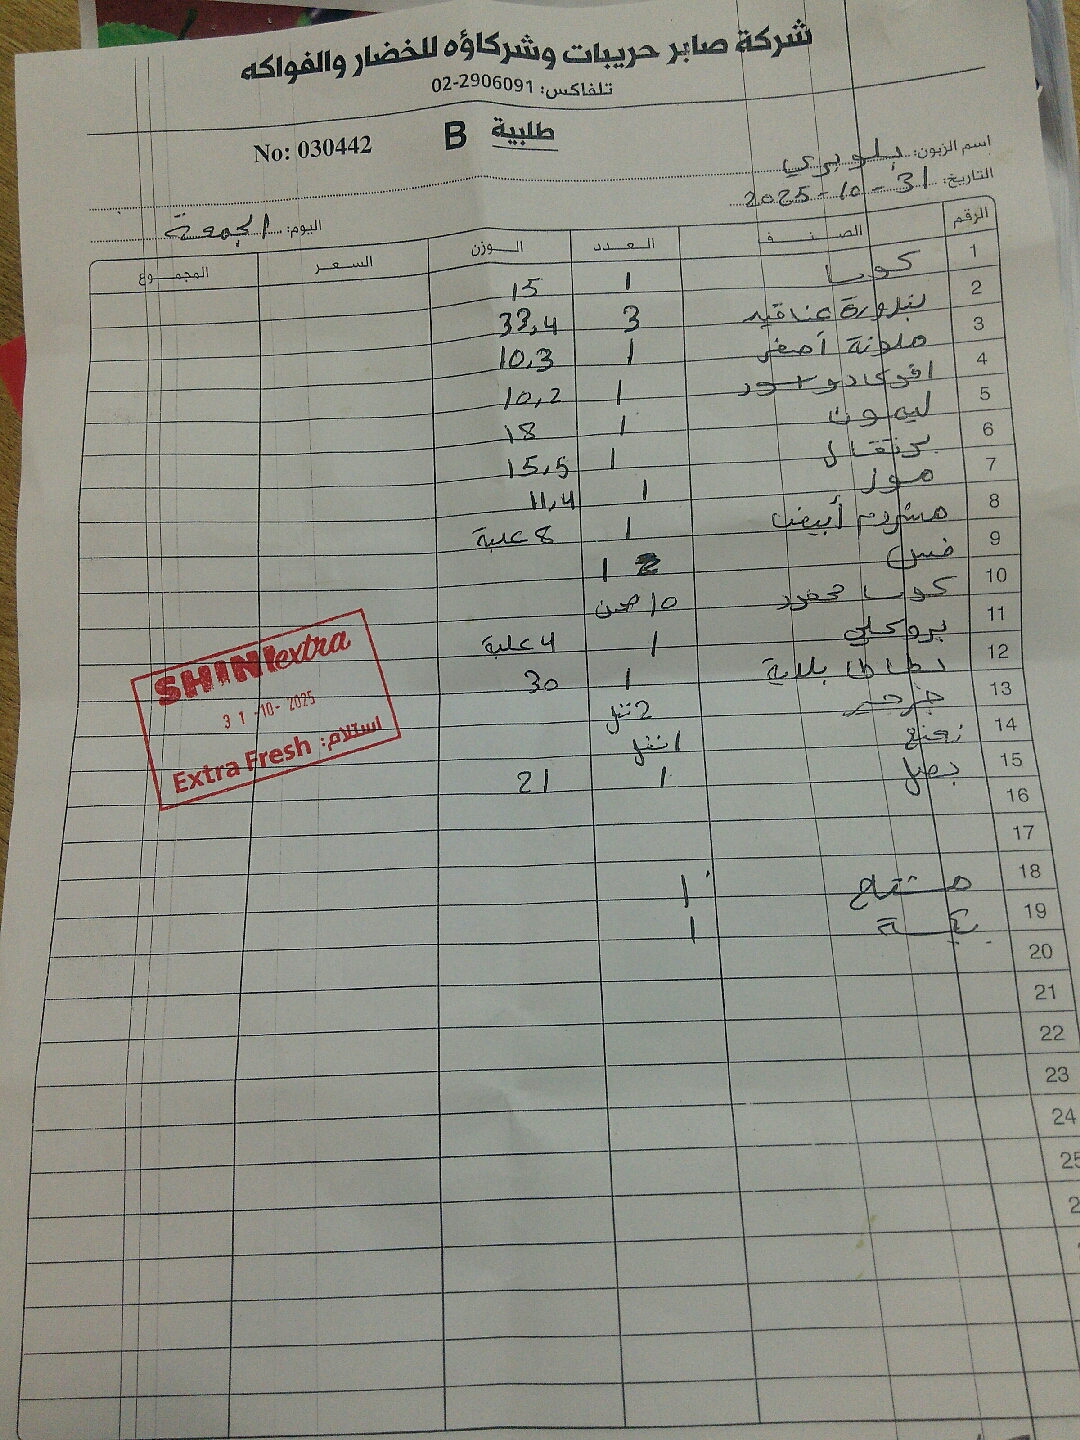 شركة صابر حريبات وشركاؤه للخضار والفواكه
تلفاكس: 02-2906091
طلبية B No: 030442
اسم الزبون: بلوبري
التاريخ: 31-10-2025
اليوم: الجمعة
الرقم الصنف العدد الوزن السعر المجموع
1 كوسا 1 15
2 بندورة عناقيد 3 33,4
3 ملونة أصفر 1 10,3
4 افوكادو اسود 1 10,2
5 ليمون 1 18
6 برتقال 1 15,5
7 موز 1 11,4
8 مشروم أبيض 1 8 علبة
9 خس 1
10 كوسا محفور 10 صحن
11 بروكلي 1 4 علبة
12 بطاطا بلدية 1 30
13 جرجير 2
14 نعنع 1
15 بصل 1 21
16
17
18 مشتاح 1
19 1
20
21
22
23
24
25
SHINI extra
31-10-2025
Extra Fresh استلام: